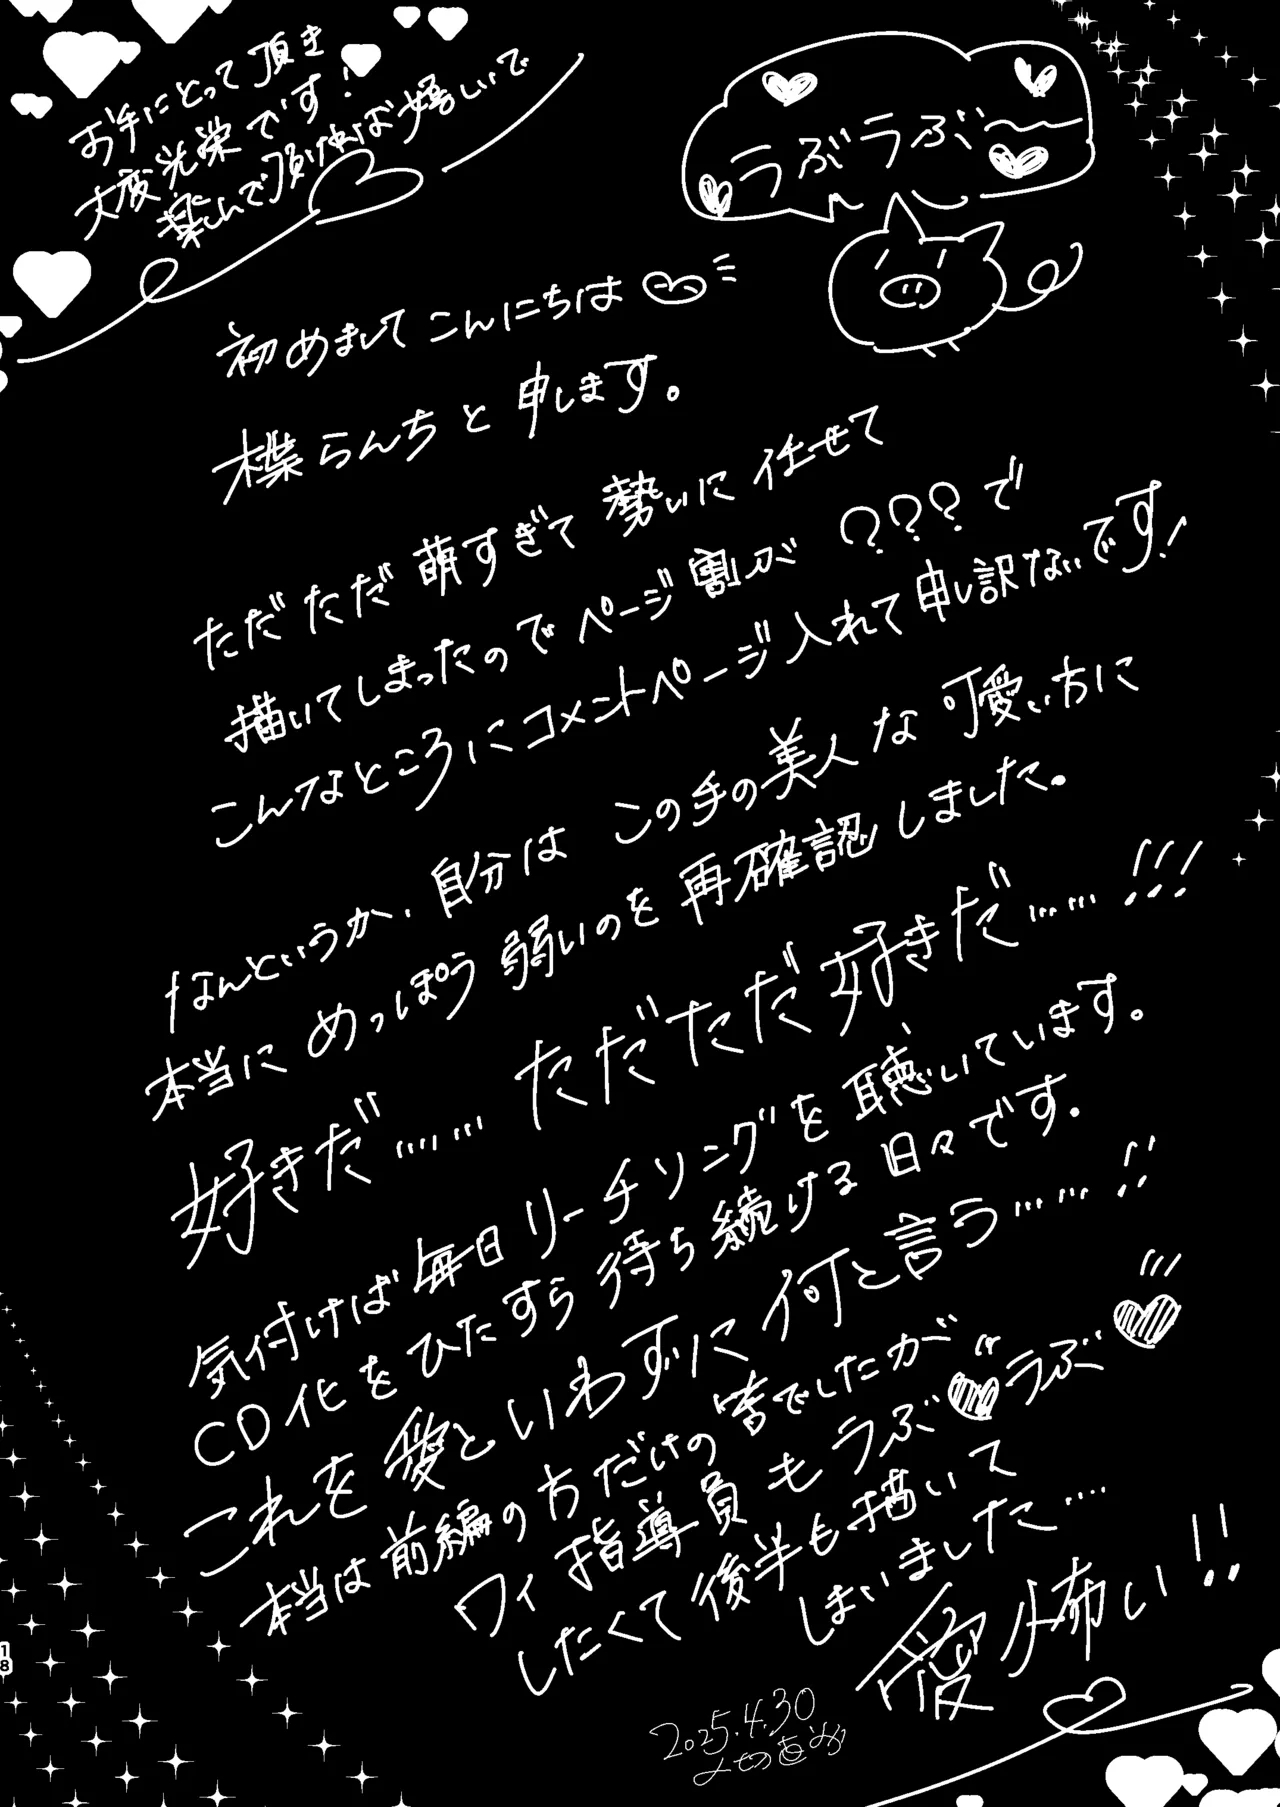 お手にとって頂き
大変光栄です！
楽しんで頂ければ嬉しいで
ラぶラぶ〜
初めましてこんにちは
楪らんちと申します。
ただただ萌すぎて勢いに任せて
描いてしまったのでページ割が???で
こんなところにコメントページ入れて申し訳ないです！
なんというか、自分はこの手の美人な可愛い方に
本当にめっぽう弱いのを再確認しました。
好きだ……ただただ好きだ……!!!
気付けば毎日リーチソングを聴いています。
CD化をひたすら待ち続ける日々です。
これを愛といわずに何と言う……!!
本当は前編の方だけの筈でしたが
ワイ指導員もラぶ♥ラぶ♥
したくて後半も描いて
しまいました….
愛怖い!!
2025.4.30
18